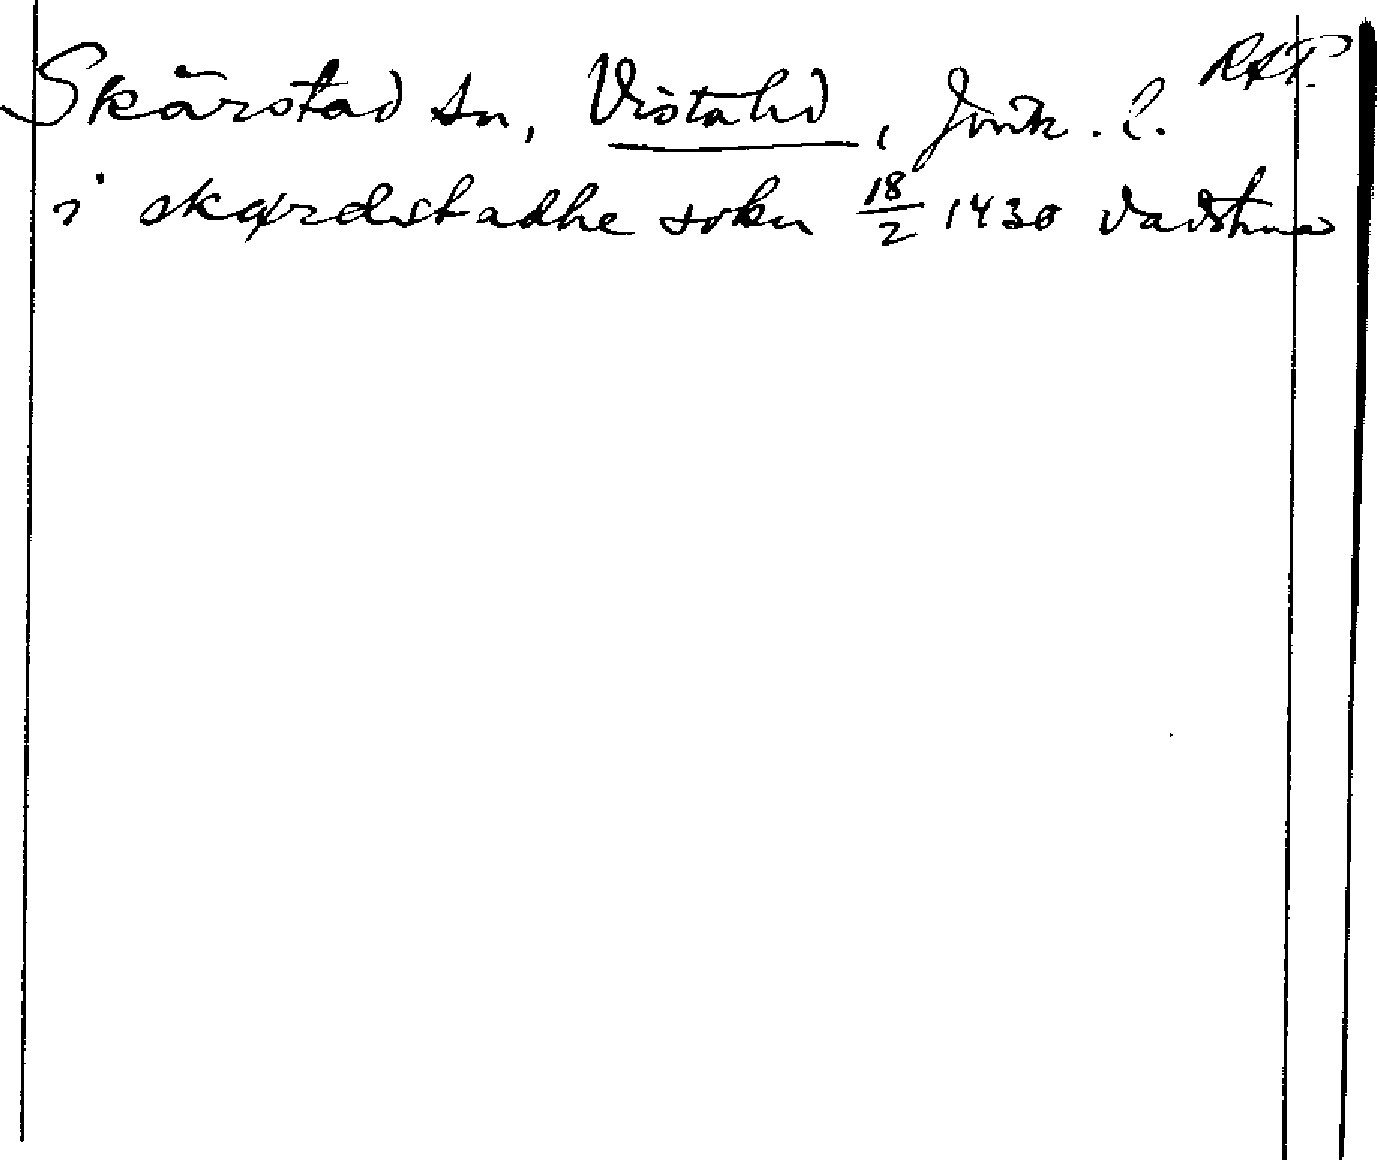 Skärstad sn, Vista hd, Jönk. l. RAP.
i skærdstadhe sokn 18/2 1430 Vadstena